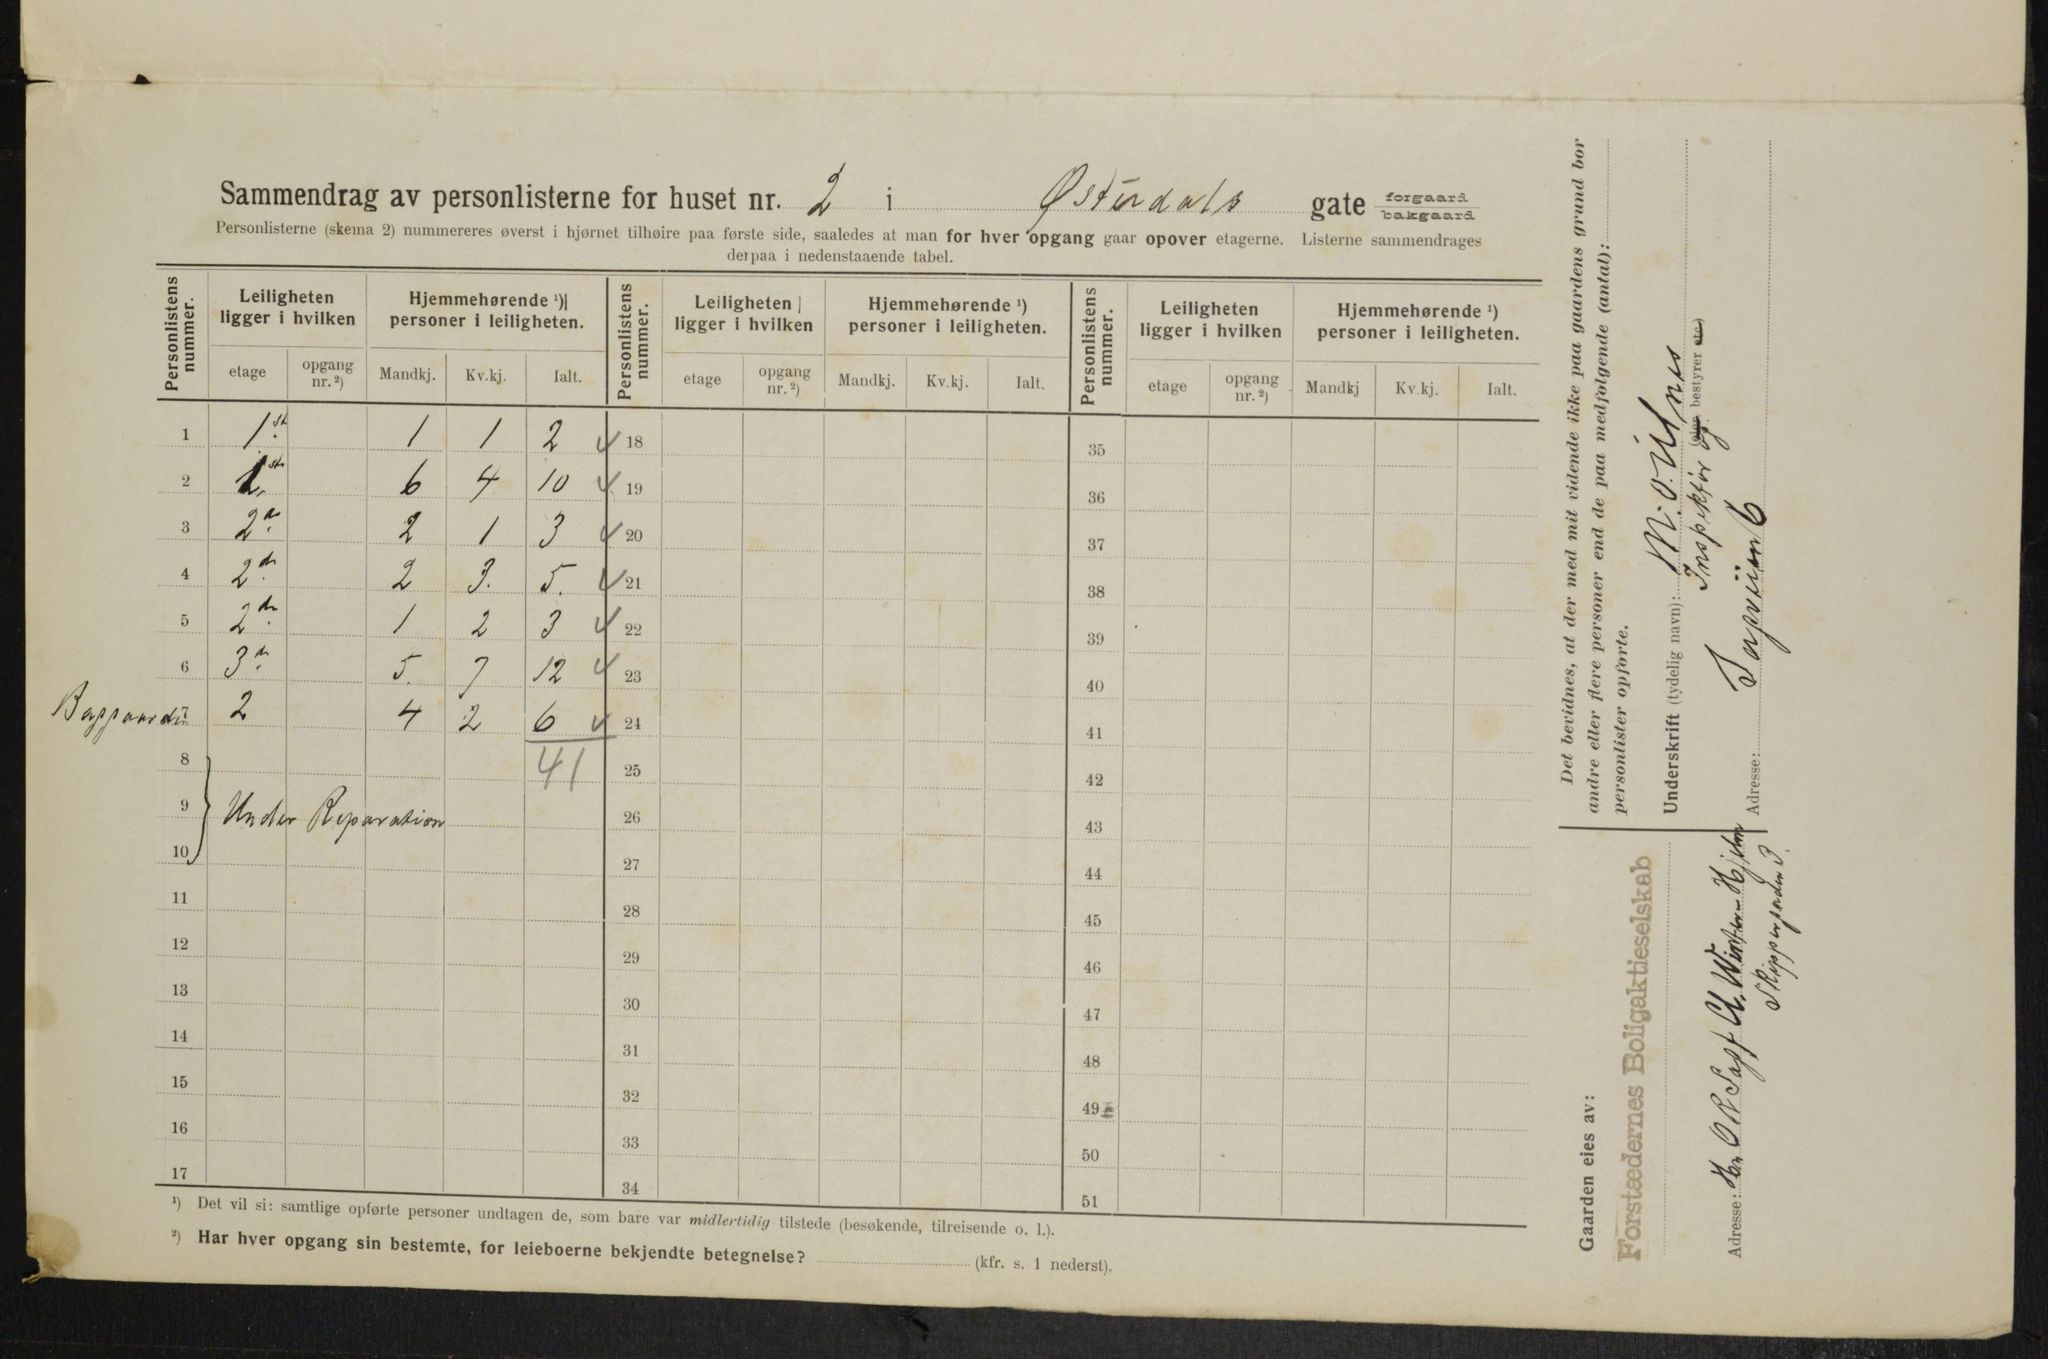 Sammendrag av personlisterne for huset nr. 2 i Østerdals gate forgaard
bakgaard
Personlisterne (skema 2) nummereres øverst i hjørnet tilhøire paa første side, saaledes at man for hver opgang gaar opover etagerne. Listerne sammendrages
derpaa i nedenstaaende tabel.
Personlistens nummer. Leiligheten ligger i hvilken Hjemmehørende ¹) personer i leiligheten. Personlistens nummer. Leiligheten ligger i hvilken Hjemmehørende ¹) personer i leiligheten. Personlistens nummer. Leiligheten ligger i hvilken Hjemmehørende ¹) personer i leiligheten.
etage opgang nr. ²) Mandkj. Kv.kj. Ialt. etage opgang nr. ²) Mandkj. Kv.kj. Ialt. etage opgang nr. ²) Mandkj Kv.kj. Ialt.
1 1st. 1 1 2 18 35
2 1st. 6 4 10 19 36
3 2de. 2 1 3 20 37
4 2de. 2 3. 5. 21 38
5 2de. 1 2 3 22 39
6 3de. 5. 7 12 23 40
7 2 4 2 6 24 41
8 41 25 42
9 Under Reparation 26 43
10 27 44
11 28 45
12 29 46
13 30 47
14 31 48
15 32 49
16 33 50
17 34 51
¹) Det vil si: samtlige opførte personer undtagen de, som bare var midlertidig tilstede (besøkende, tilreisende o. l.).
²) Har hver opgang sin bestemte, for leieboerne bekjendte betegnelse? (kfr. s. 1 nederst).
Det bevidnes, at der med mit vidende ikke paa gaardens grund bor
andre eller flere personer end de paa medfølgende (antal):
personlister opførte.
Underskrift (tydelig navn):
Inspektør og bestyrer etc.)
Adresse: 6
Gaarden eies av:
Forstædernes Boligaktieselskab
Adresse: Hr. O R Sagf U. Winter-Hjelm
Skippergaden 3.